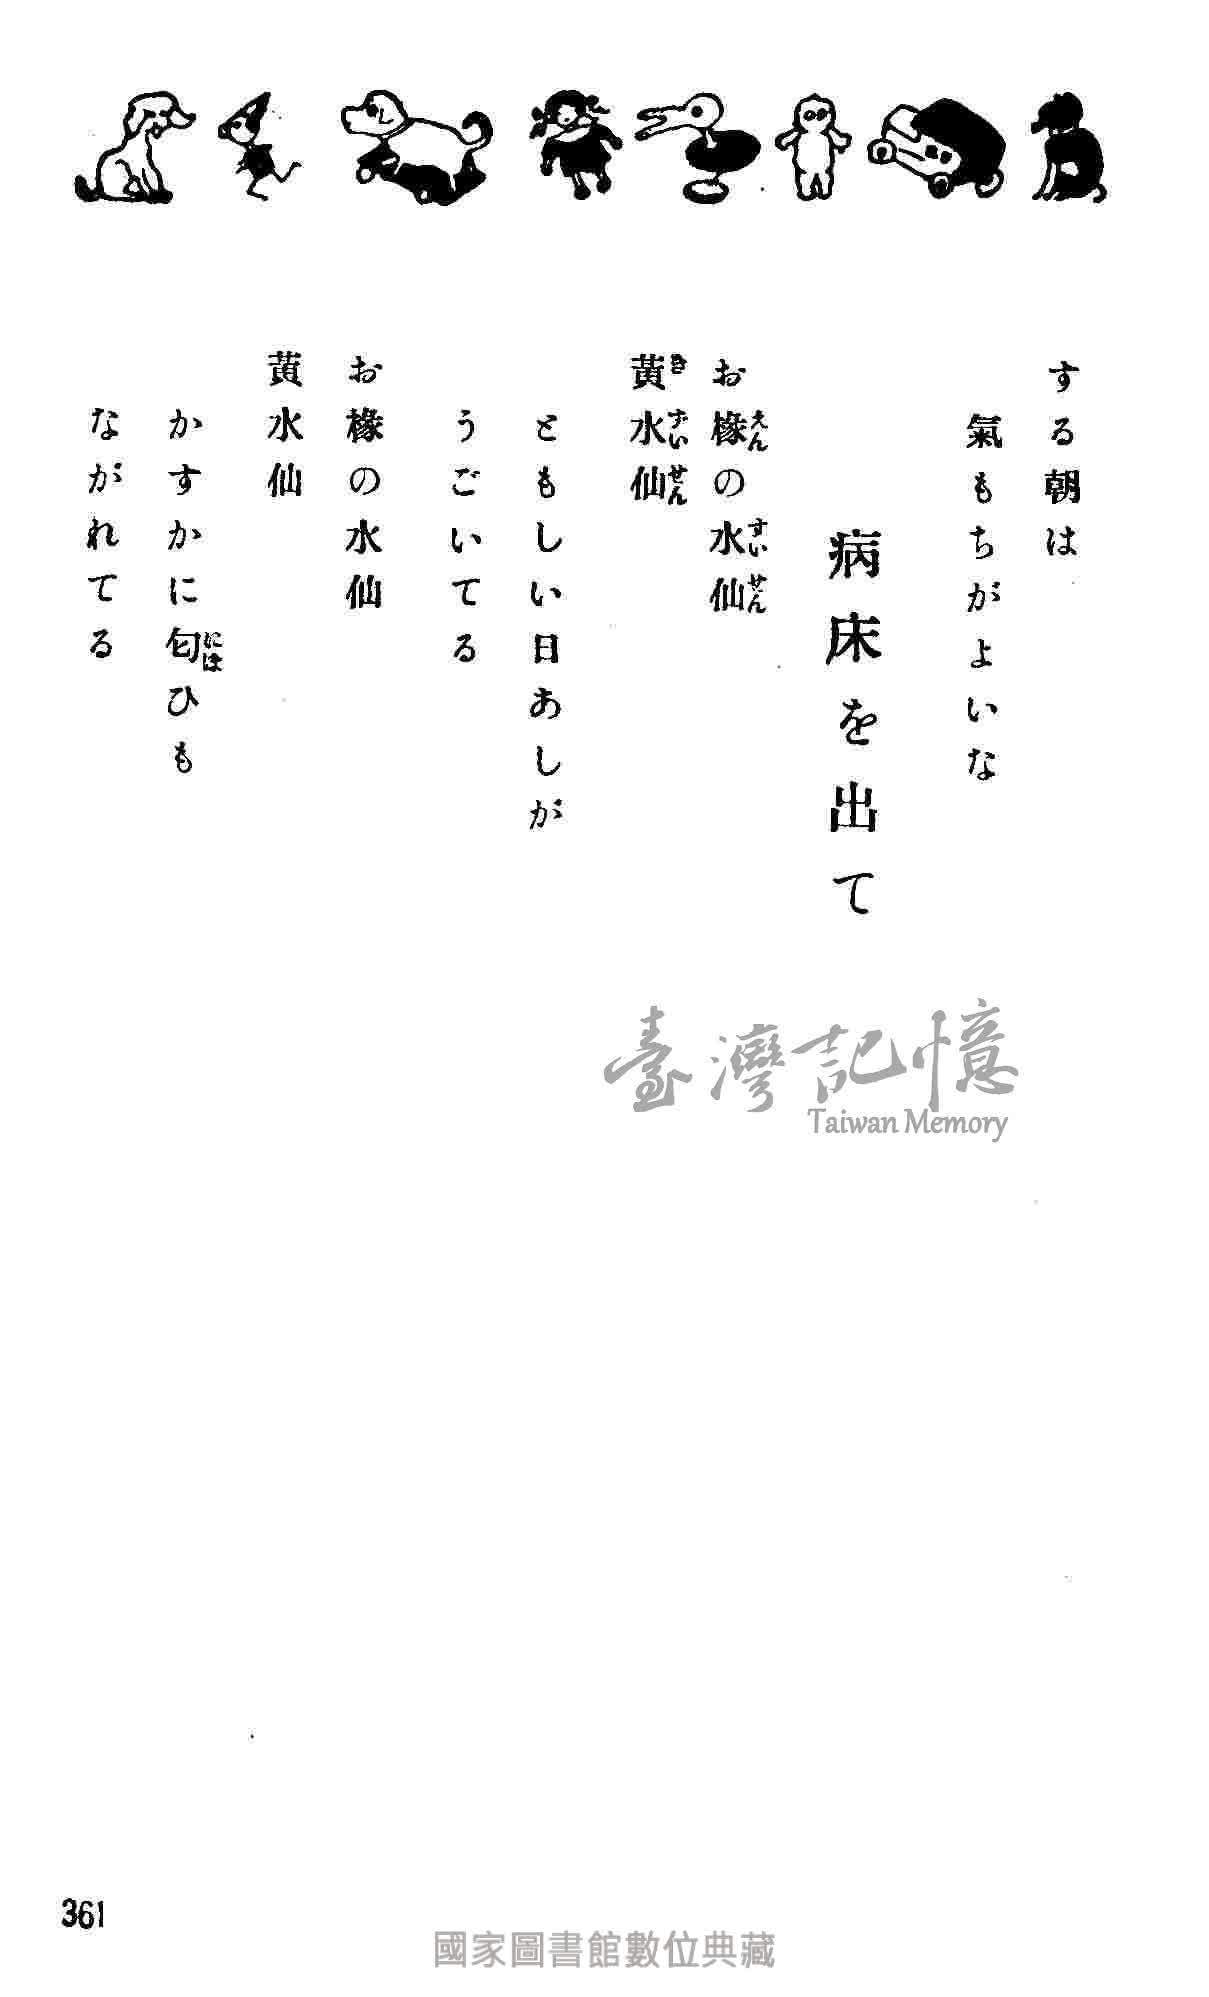 する朝は
氣もちがよいな
病床を出て
お椽の水仙
黄水仙
ともしい日あしが
うごいてる
お椽の水仙
黄水仙
かすかに匂ひも
ながれてる
臺灣記憶
Taiwan Memory
361
國家圖書館數位典藏